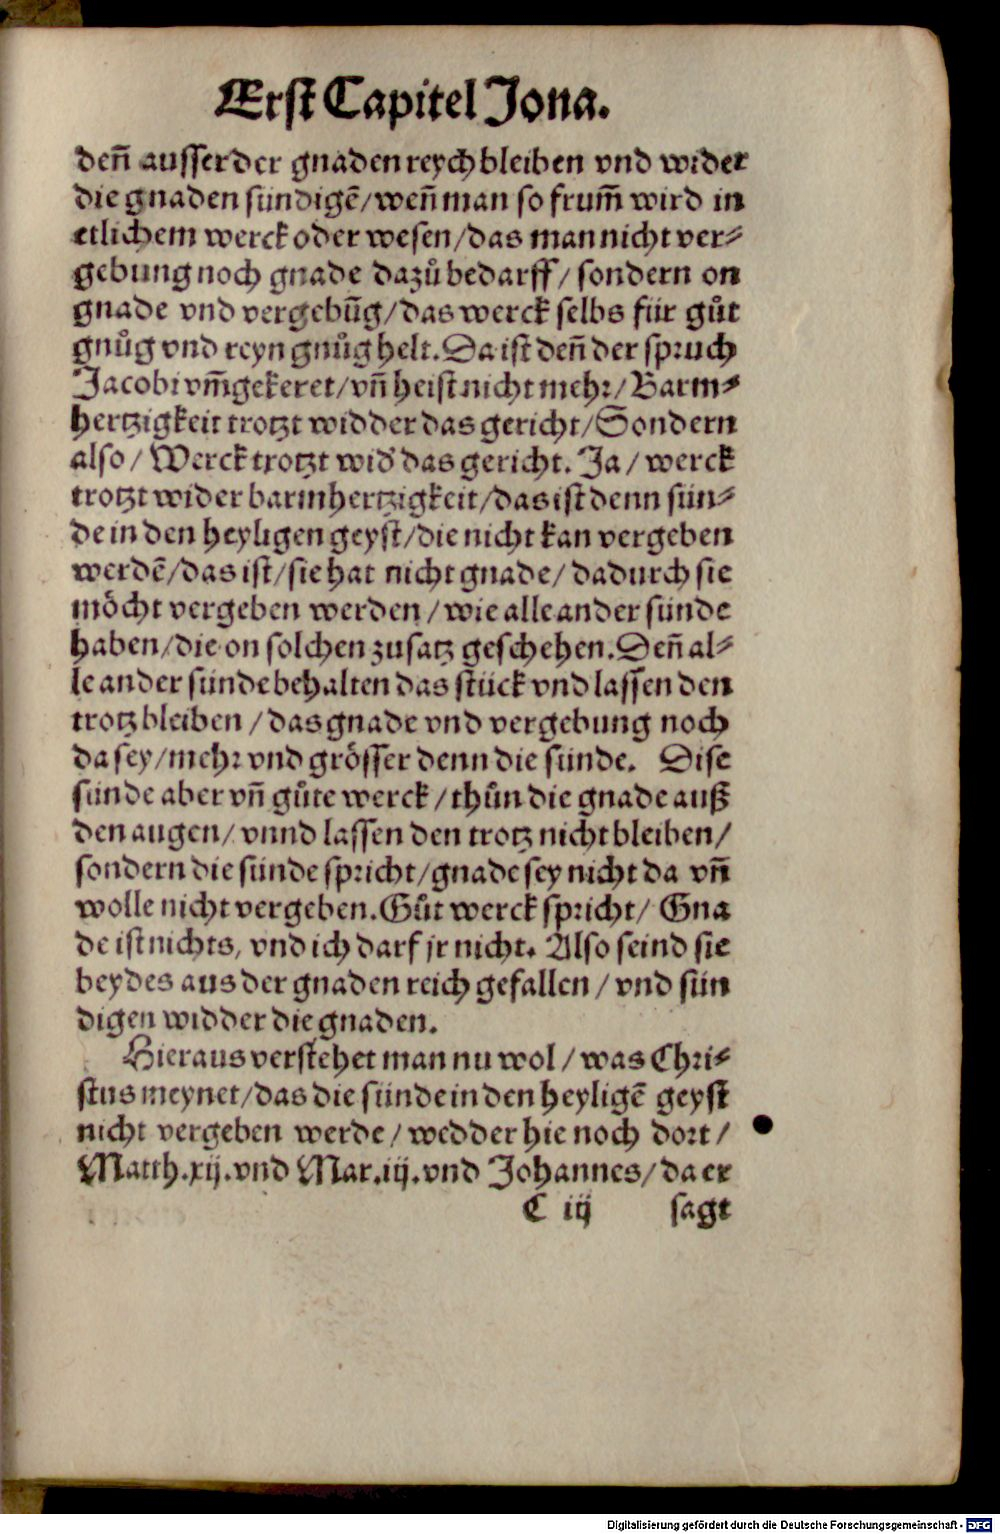 Erst Capitel Jona.
deñ ausser der gnaden reych bleiben vnd wider
die gnaden sündigẽ/ weñ man so frum̃ wird in
etlichem werck oder wesen/ das man nicht ver⸗
gebung noch gnade dazů bedarff/ sondern on
gnade vnd vergebũg/ das werck selbs für gůt
gnůg vnd reyn gnůg helt. Da ist deñ der spruch
Jacobi vm̃gekeret/ vñ heist nicht mehr/ Barm⸗
hertzigkeit trotzt widder das gericht/ Sondern
also/ Werck trotzt wid᷑ das gericht. Ja/ werck
trotzt wider barmhertzigkeit/ das ist denn sün⸗
de in den heyligen geyst/ die nicht kan vergeben
werdẽ/ das ist/ sie hat nicht gnade/ dadurch sie
mͦcht vergeben werden/ wie alle ander sünde
haben/ die on solchen zusatz geschehen. Deñ al⸗
le ander sünde behalten das stück vnd lassen den
trotz bleiben/ das gnade vnd vergebung noch
da sey/ mehr vnd grösser denn die sünde. Dise
sünde aber vñ gůte werck/ thůn die gnade auß
den augen/ vnnd lassen den trotz nicht bleiben/
sondern die sünde spricht/ gnade sey nicht da vñ
wolle nicht vergeben. Gůt werck spricht/ Gna
de ist nichts, vnd ich darf jr nicht. Also seind sie
beydes aus der gnaden reich gefallen/ vnd sün
digen widder die gnaden.
Hieraus verstehet man nu wol/ was Chri⸗
stus meynet/ das die sünde in den heyligẽ geyst
nicht vergeben werde/ wedder hie noch dort/
Matth.xij. vnd Mar.iij. vnd Johannes/ da er
C iij sagt
Digitalisierung gefördert durch die Deutsche Forschungsgemeinschaft - DFG